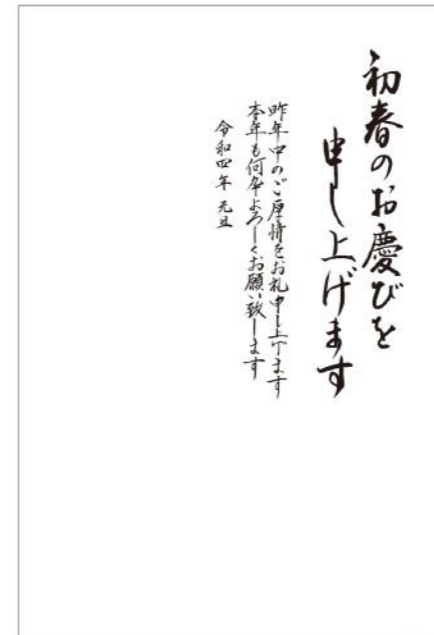 初春のお慶びを
申し上げます
昨年中のご厚情をお礼申し上げます
本年も何卒よろしくお願い致します
令和四年 元旦